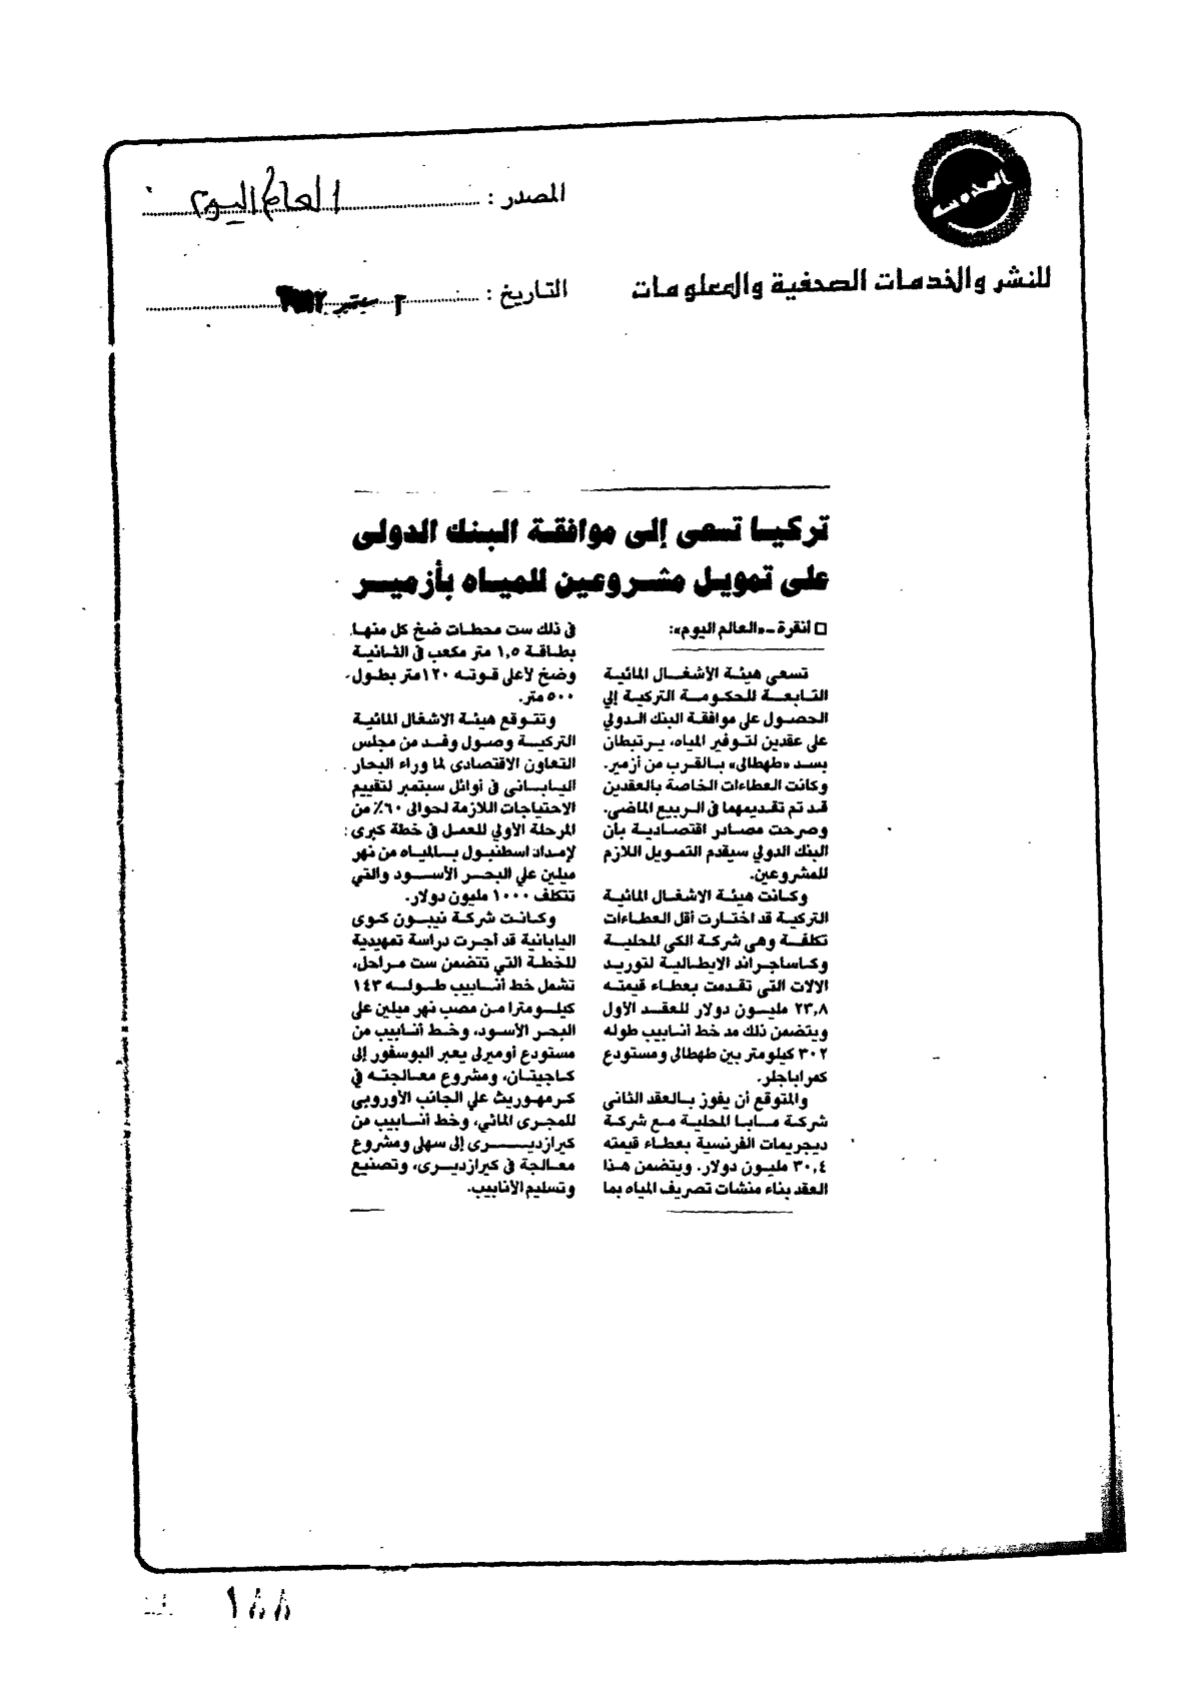 المصدر : العالم اليوم
للنشر والخدمات الصحفية والمعلومات
التاريخ : ٢ سبتمبر
تركيا تسعى إلى موافقة البنك الدولى
على تمويل مشروعين للمياه بأزمير
□ انقرة ـ «العالم اليوم»:
تسعى هيئة الأشغال المائية
التابعة للحكومة التركية إلي
الحصول على موافقة البنك الدولي
على عقدين لتوفير المياه، يرتبطان
بسد «طهطالى» بالقرب من أزمير.
وكانت العطاءات الخاصة بالعقدين
قد تم تقديمهما فى الربيع الماضى.
وصرحت مصادر اقتصادية بأن
البنك الدولي سيقدم التمويل اللازم
للمشروعين.
وكانت هيئة الاشغال المائية
التركية قد اختارت أقل العطاءات
تكلفة وهى شركة الكى المحلية
وكاساجراند الايطالية لتوريد
الالات التى تقدمت بعطاء قيمته
٢٣,٨ مليون دولار للعقد الأول
ويتضمن ذلك مد خط أنابيب طوله
٣٠٢ كيلومتر بين طهطالى ومستودع
كمراباجلر.
والمتوقع أن يفوز بالعقد الثانى
شركة مابا المحلية مع شركة
ديجريمات الفرنسية بعطاء قيمته
٣٠,٤ مليون دولار. ويتضمن هذا
العقد بناء منشات تصريف المياه بما
فى ذلك ست محطات ضخ كل منها
بطاقة ١,٥ متر مكعب فى الثانية
وضخ لأعلى قوته ١٢٠متر بطول
٥٠٠ متر.
وتتوقع هيئة الاشغال المائية
التركية وصول وفد من مجلس
التعاون الاقتصادى لما وراء البحار
اليابانى فى أوائل سبتمبر لتقييم
الاحتياجات اللازمة لحوالى ٦٠٪ من
المرحلة الأولي للعمل فى خطة كبرى
لإمداد اسطنبول بالمياه من نهر
ميلين علي البحر الأسود والتي
تتكلف ١٠٠٠ مليون دولار.
وكانت شركة نيبون كوى
اليابانية قد أجرت دراسة تمهيدية
للخطة التي تتضمن ست مراحل،
تشمل خط أنابيب طوله ١٤٣
كيلومترا من مصب نهر ميلين على
البحر الأسود، وخط أنابيب من
مستودع أوميرلى يعبر البوسفور إلى
كاجيتان، ومشروع معالجته فى
كرمهوريث علي الجانب الأوروبى
للمجرى المائي، وخط أنابيب من
كيرازديرى إلى سهلى ومشروع
معالجة فى كيرازديرى، وتصنيع
وتسليم الأنابيب.